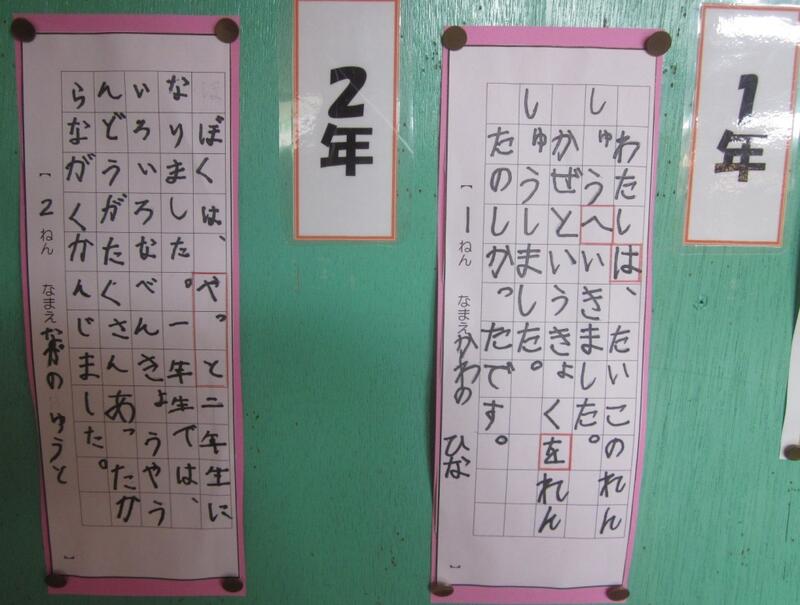 1年
わたしは、たいこのれん
しゅうへいきました。
かぜというきょくをれん
しゅうしました。
たのしかったです。
【 1ねん なまえ かわの ひな 】
2年
ぼくは、やっと二年生に
なりました。一年生では、
いろいろなべんきょうやう
んどうがたくさんあったか
らながくかんじました。
【 2ねん なまえ ながの ゆうと 】